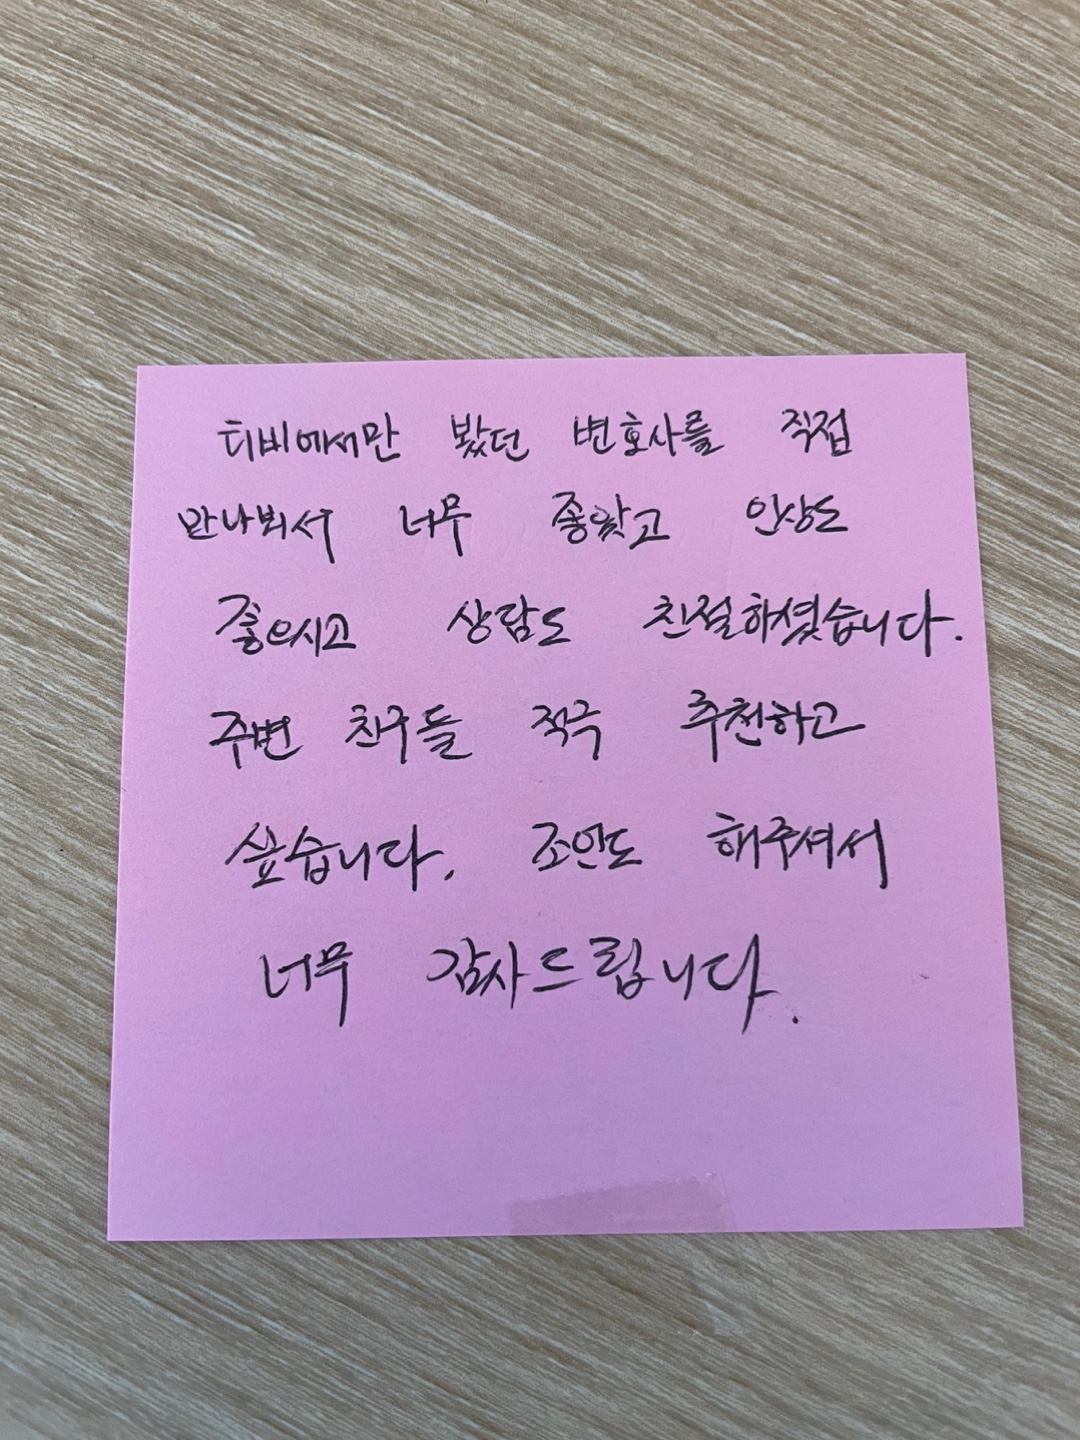 티비에서만 봤던 변호사를 직접
만나뵈서 너무 좋았고 인상도
좋으시고 상담도 친절하셨습니다.
주변 친구들 적극 추천하고
싶습니다. 조언도 해주셔서
너무 감사드립니다.